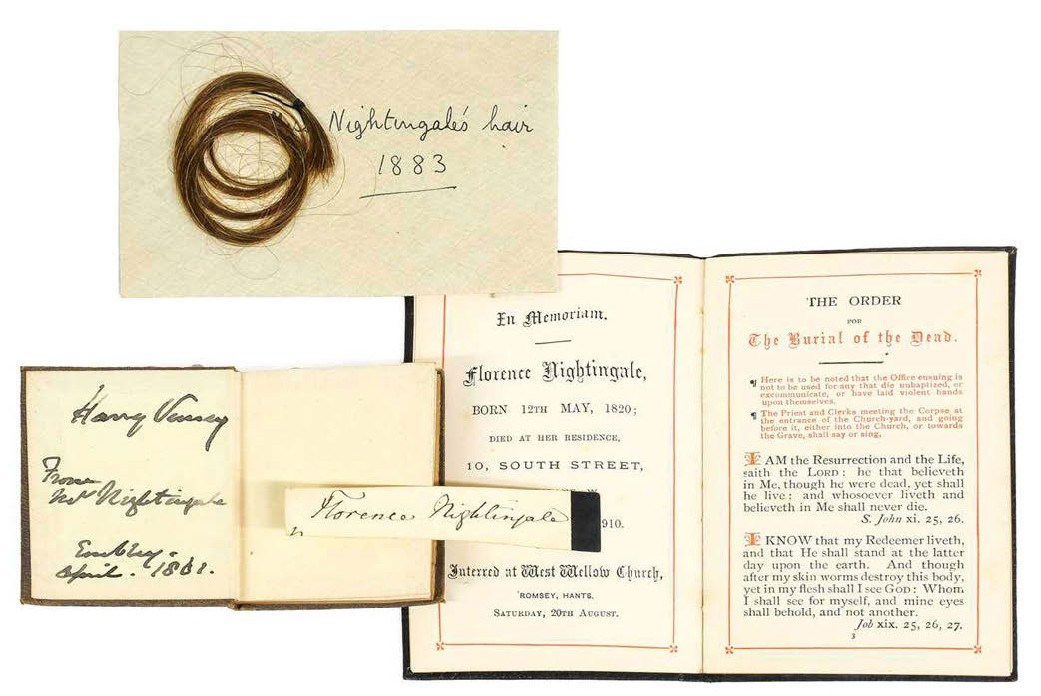 Nightingale's hair
1883
In Memoriam.
Florence Nightingale,
BORN 12TH MAY, 1820;
DIED AT HER RESIDENCE,
10, SOUTH STREET,
910.
Interred at West Wellow Church,
ROMSEY, HANTS,
SATURDAY, 20TH AUGUST.
THE ORDER
FOR
The Burial of the Dead.
¶ Here is to be noted that the Office ensuing is
not to be used for any that die unbaptized, or
excommunicate, or have laid violent hands
upon themselves.
¶ The Priest and Clerks meeting the Corpse at
the entrance of the Church-yard, and going
before it, either into the Church, or towards
the Grave, shall say or sing,
I AM the Resurrection and the Life,
saith the LORD: he that believeth
in Me, though he were dead, yet shall
he live: and whosoever liveth and
believeth in Me shall never die.
S. John xi. 25, 26.
I KNOW that my Redeemer liveth,
and that He shall stand at the latter
day upon the earth. And though
after my skin worms destroy this body,
yet in my flesh shall I see GOD: Whom
I shall see for myself, and mine eyes
shall behold, and not another.
Job xix. 25, 26, 27.
3
Harry Vessey
From
Nightingale
Embley.
April. 1861.
Florence Nightingale